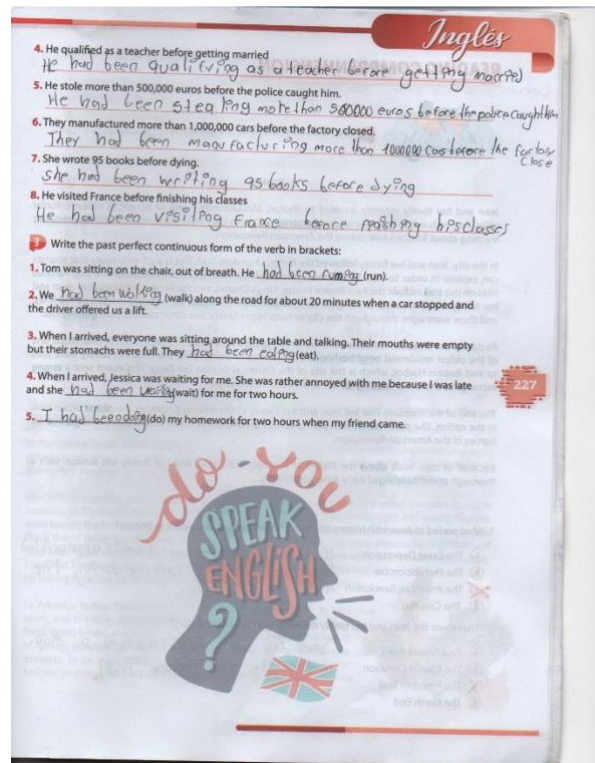 Inglés
4. He qualified as a teacher before getting married
He had been qualifying as a teacher before getting married
5. He stole more than 500,000 euros before the police caught him.
He had been stealing more than 500000 euros before the police caught him
6. They manufactured more than 1,000,000 cars before the factory closed.
They had been manufacturing more than 1000000 cars before the factory
close
7. She wrote 95 books before dying.
she had been writing 95 books before dying
8. He visited France before finishing his classes
He had been visiting France before his classes
3 Write the past perfect continuous form of the verb in brackets:
1. Tom was sitting on the chair, out of breath. He had been runing (run).
2. We had been walking (walk) along the road for about 20 minutes when a car stopped and
the driver offered us a lift.
3. When I arrived, everyone was sitting around the table and talking. Their mouths were empty
but their stomachs were full. They had been eating (eat).
4. When I arrived, Jessica was waiting for me. She was rather annoyed with me because I was late
and she had been waiting (wait) for me for two hours.
227
5. I had been doing (do) my homework for two hours when my friend came.
do-you
SPEAK
ENGLISH
?